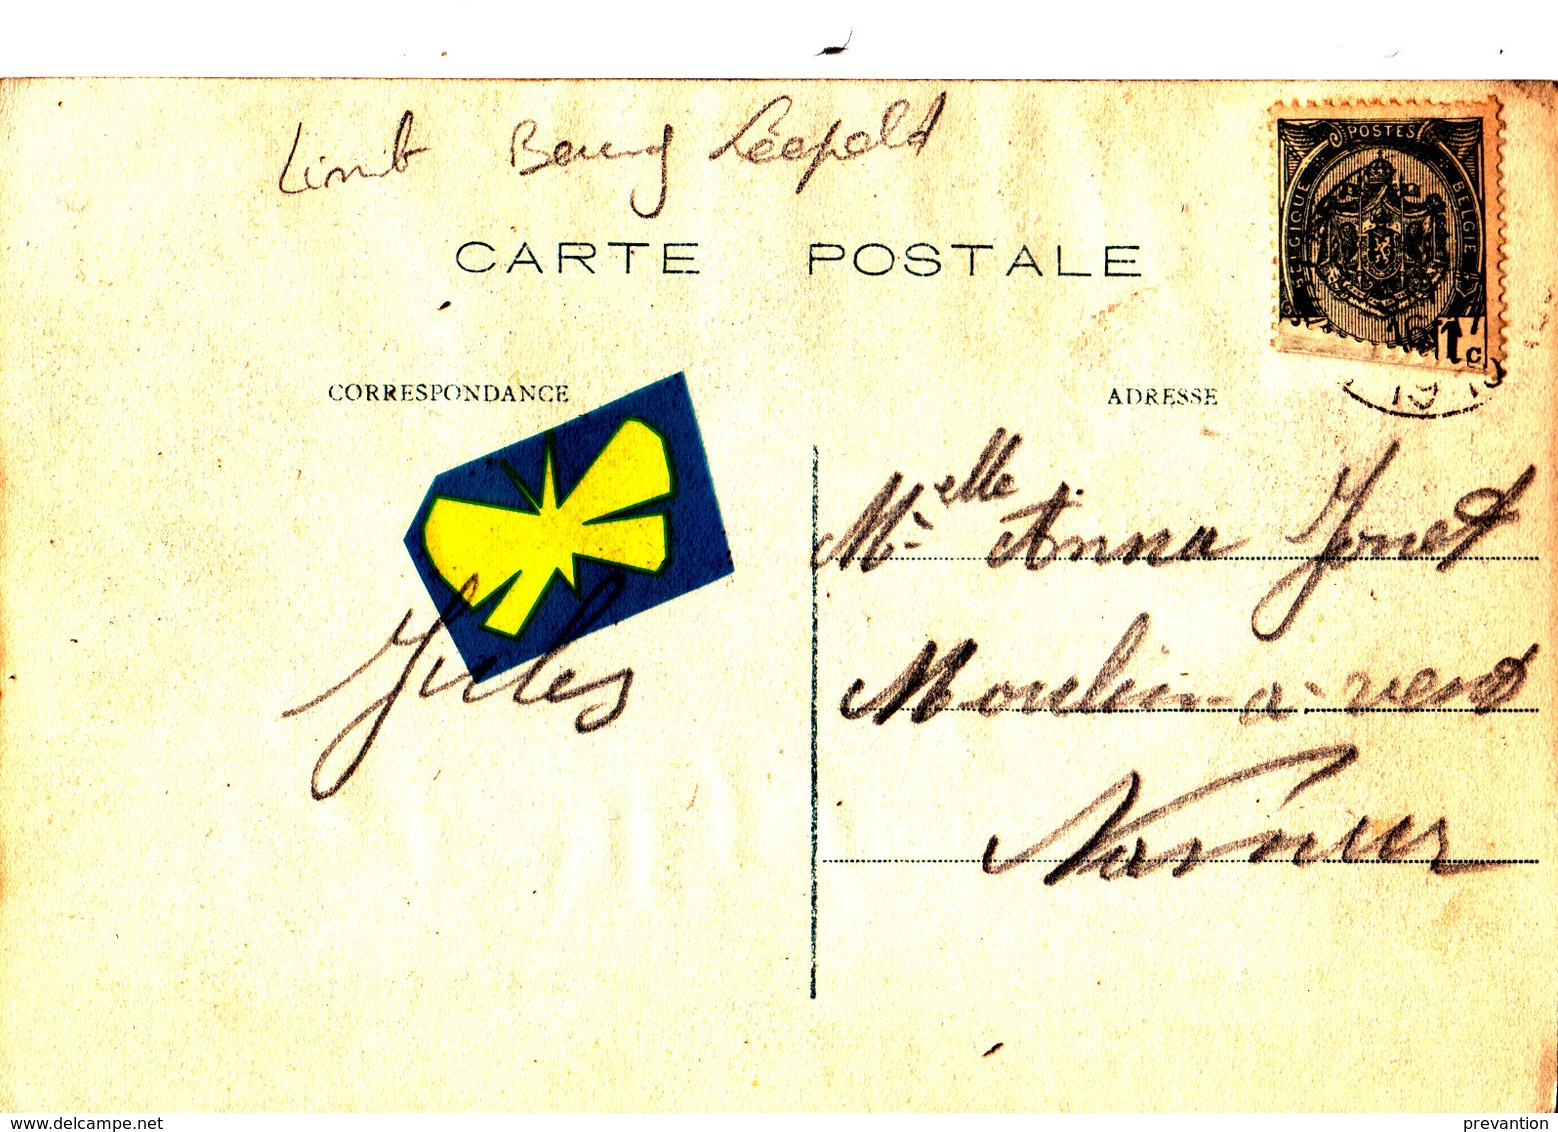 Limb Bourg Léopold
CARTE POSTALE
POSTES
BELGIQUE
BELGIE
1c
16
17
19
CORRESPONDANCE
ADRESSE
Melle Anna Jonet
Jules
Moulin-à-vent
Namur
delcampe.net
prevantion